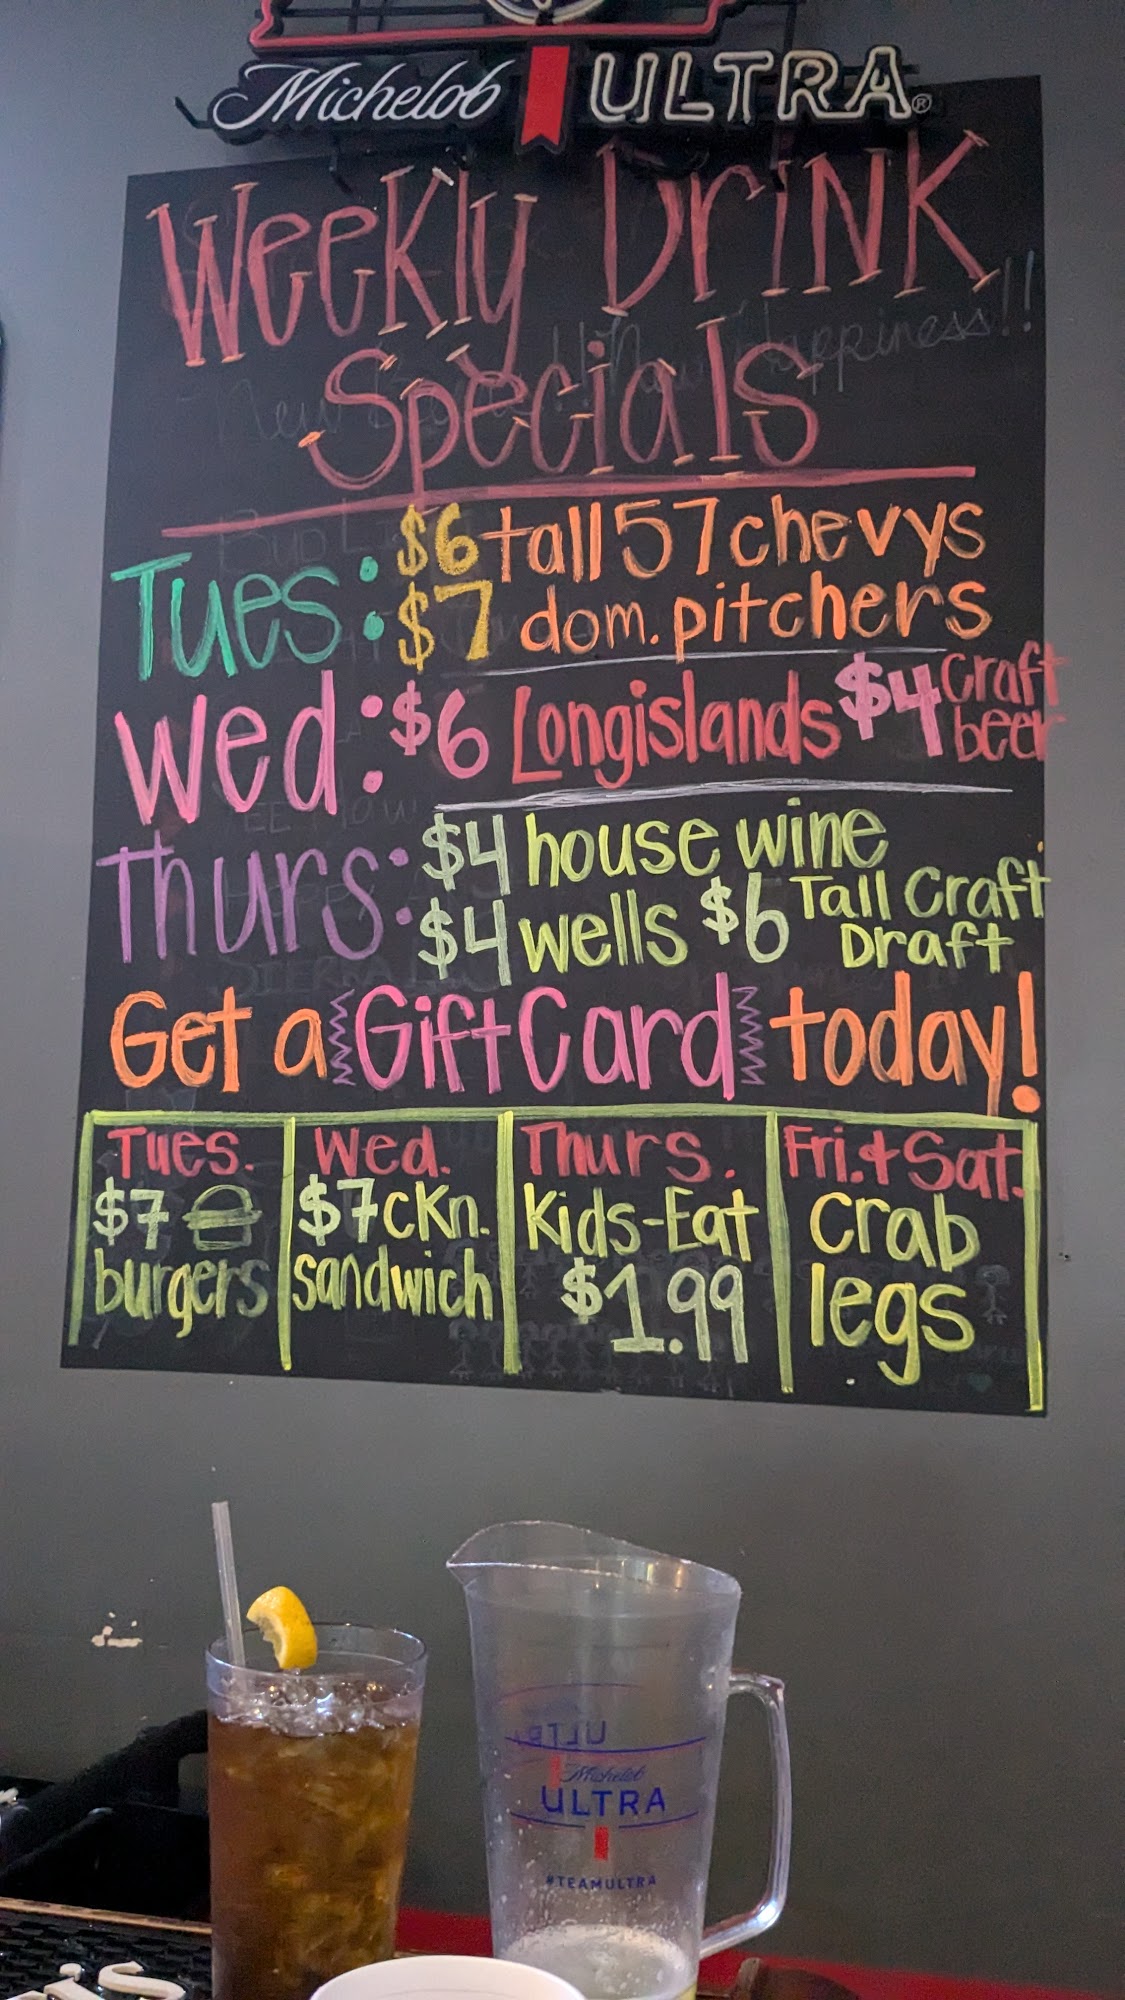 Michelob ULTRA®
Weekly Drink
Specials
Tues: $6 tall 57 chevys
$7 dom. pitchers
Wed: $6 Longislands $4 Craft
beer
Thurs: $4 house wine
$4 wells $6 Tall Craft
Draft
Get a Gift Card today!
Tues.
$7
burgers
Wed.
$7 ckn.
sandwich
Thurs.
Kids-Eat
$1.99
Fri. & Sat.
Crab
legs
Michelob
ULTRA
#TEAMULTRA